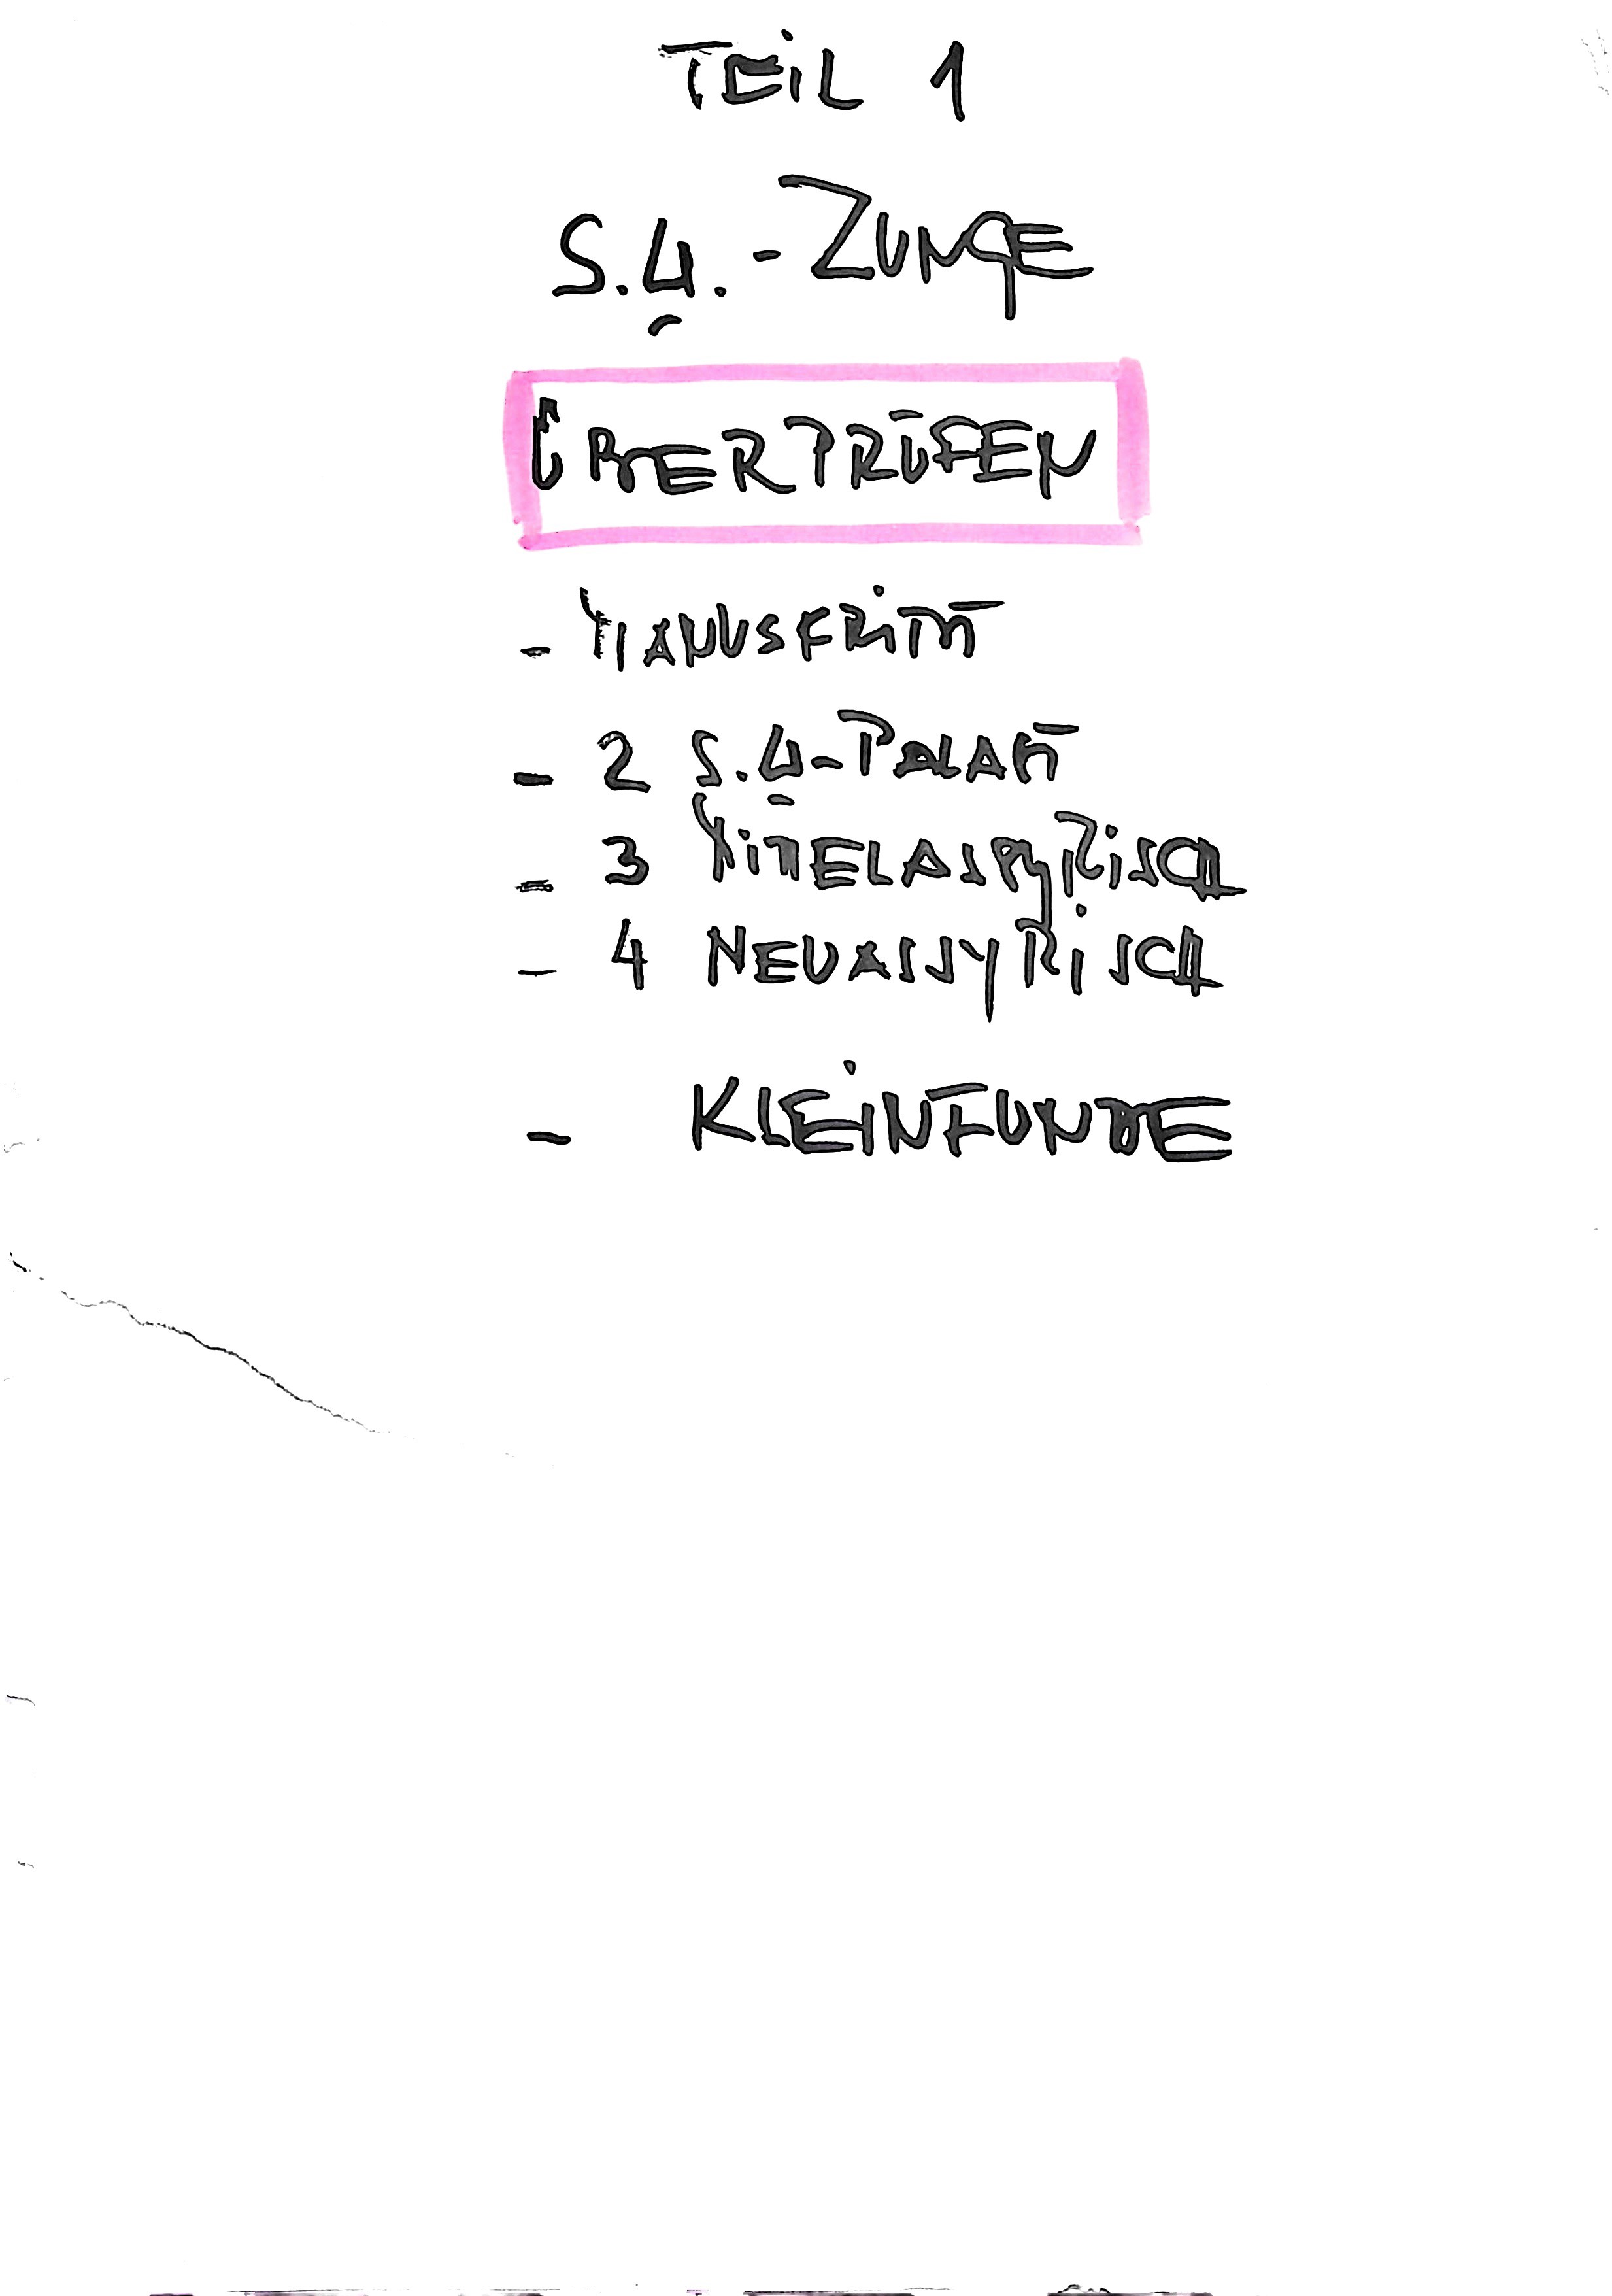 TEIL 1
S.Ḫ.-ZUNGE
ÜBERPRÜFEN
- MANUSKRIPT
- 2 S.Ḫ-PALAST
- 3 MITTELASSYRISCH
- 4 NEUASSYRISCH
- KLEINFUNDE